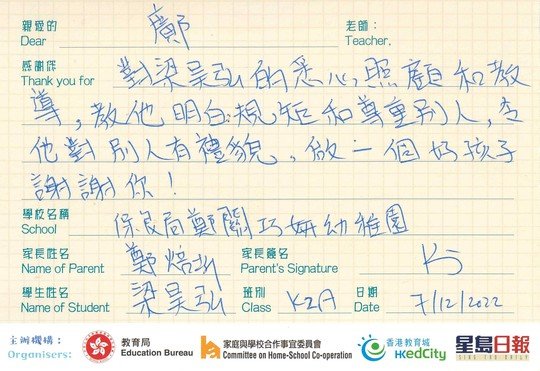 親愛的 鄺 老師：
Dear Teacher,
感謝您 對梁昊弘的悉心照顧和教
Thank you for
導，教他明白規矩和尊重別人，令
他對別人有禮貌，做一個好孩子
謝謝你！
學校名稱
School 保良局鄭關巧妍幼稚園
家長姓名 鄭焙 家長簽名
Name of Parent Parent's Signature
學生姓名 梁昊弘 班別 K2A 日期 7/12/2022
Name of Student Class Date
主辦機構：
Organisers:
教育局
Education Bureau
家庭與學校合作事宜委員會
Committee on Home-School Co-operation
香港教育城
HKedCity
星島日報
SING TAO DAILY